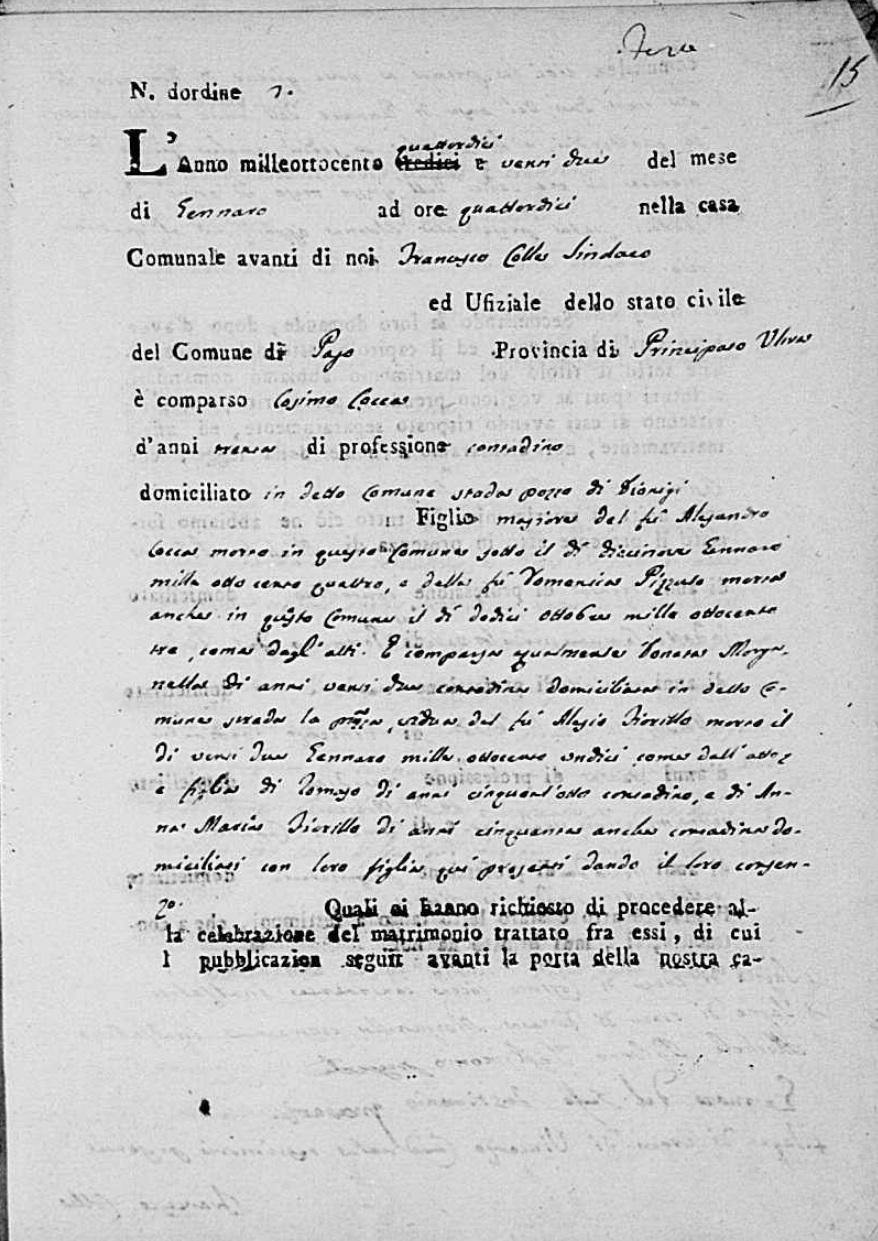 15
N. dordine
quattordici
L'Anno milleottocento tredici e venti due del mese
di Gennaro ad ore quattordici nella casa
Comunale avanti di noi Francesco Colle Sindaco
ed Ufiziale dello stato civile
del Comune di Pago Provincia di Principato Ulra
è comparso Cosimo Cocca
d'anni trenta di professione contadino
domiciliato in detto Comune strada pozzo di Dionigi
Figlio maggiore del fù Alesandro
Cocca morto in questo Comune sotto il dì diecinove Gennaro
mille otto cento quattro, e della fù Domenica Pizzuto morta
anche in questo Comune il dì dodici ottobre mille ottocento
tre, come dagl'atti. È comparsa egualmente Donata Morga-
nella di anni venti due contadina domiciliata in detto Co-
mune strada la vidua del fù Alesio Fiorillo morto il
di venti due Gennaro mille ottocento undici come dall'atto,
e figlia di Tomaso di anni cinquant'otto contadino, e di An-
na Maria Fiorillo di anni cinquanta anche contadina do-
miciliati con loro figlia quì presenti dando il loro consen-
zo. Quali ci hanno richiesto di procedere al-
la celebrazione del matrimonio trattato fra essi, di cui
l pubblicazion seguit avanti la porta della nostra ca-